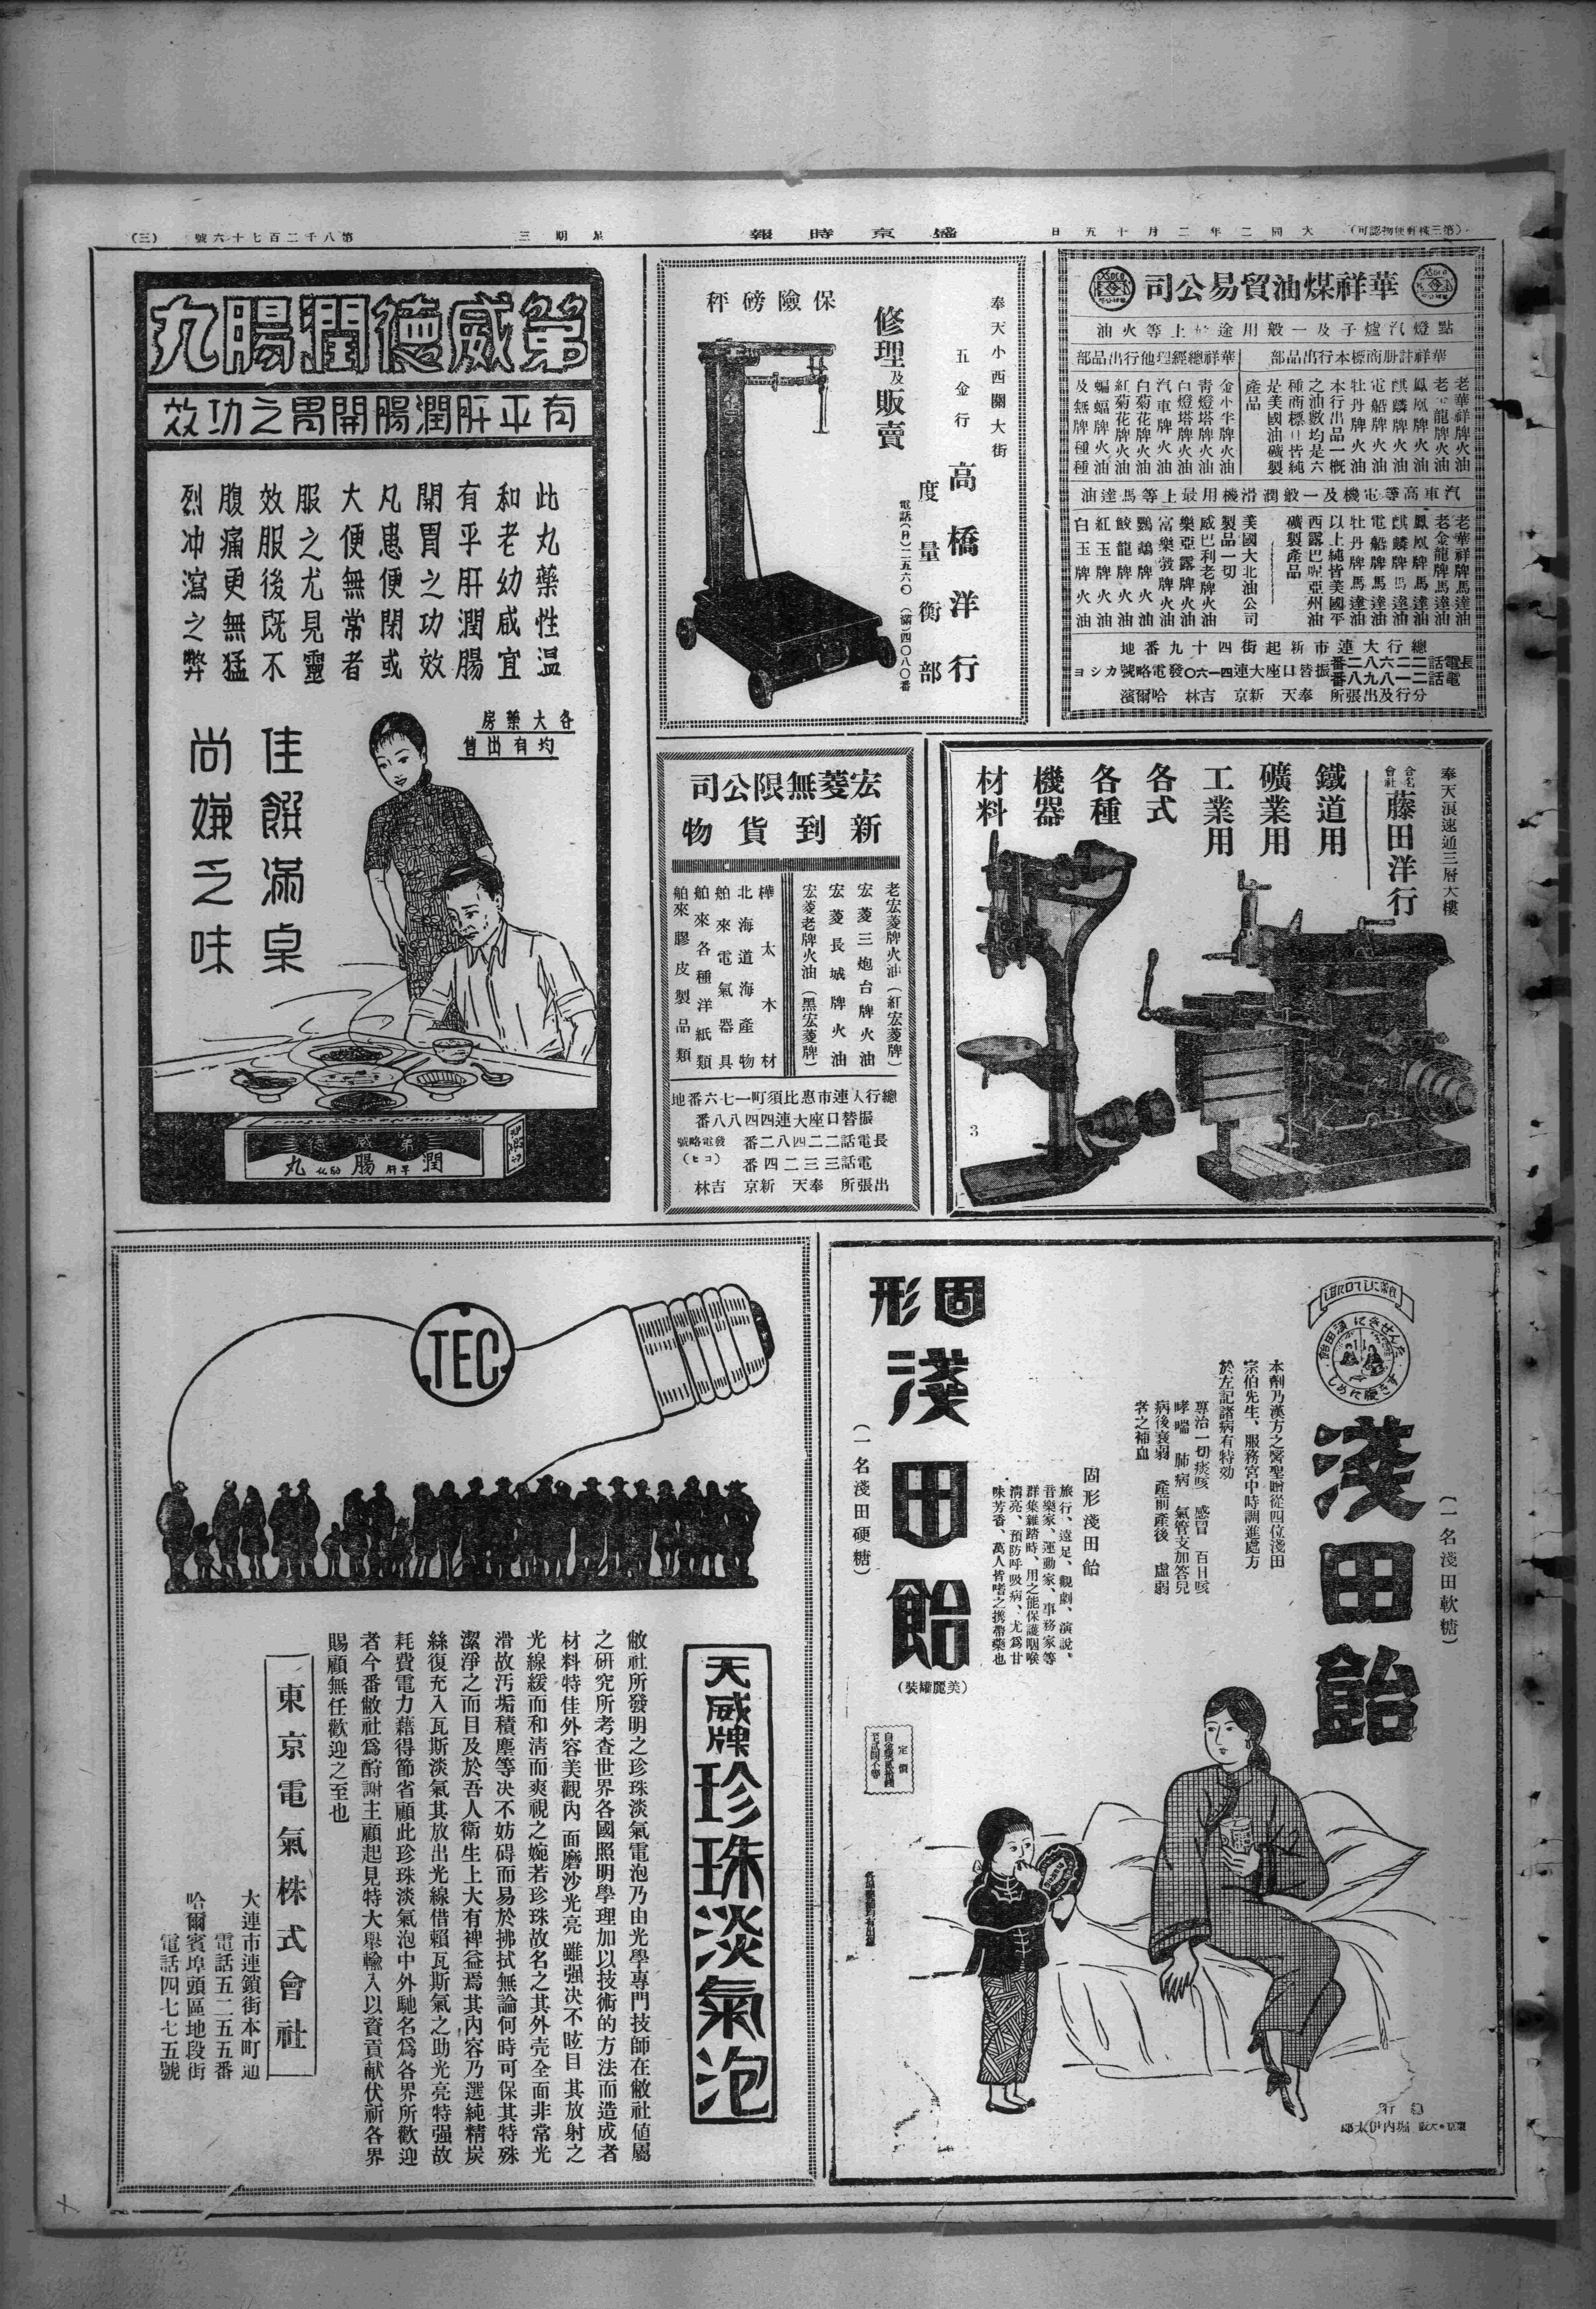 (第三種郵便物認可)
大同二年二月十五日
盛京時報
星期三
第八千二百七十六號
(三)
華祥煤油貿易公司
點燈汽爐子及一般用途最上等火油
華祥計册商標本行出品部
老華祥牌火油
老金龍牌火油
鳳凰牌火油
麒麟牌火油
電船牌火油
牡丹牌火油
本行出品一概
之油數均是六
種商標且皆純
是美國油礦製
產品
華祥總經理他行出品部
金小牛牌火油
青燈塔牌火油
白燈塔牌火油
汽車牌火油
白菊花牌火油
紅菊花牌火油
蝙蝠牌火油
及無牌種種
汽車高等電機及一般潤滑機用最上等馬達油
老華祥牌馬達油
老金龍牌馬達油
鳳凰牌馬達油
麒麟牌馬達油
電船牌馬達油
牡丹牌馬達油
以上純皆美國平
西露巴呢亞州油
礦製產品
美國大北油公司
製品一切
威巴利老牌火油
樂亞露牌火油
富樂發牌火油
鸚鵡牌火油
鮫龍牌火油
紅玉牌火油
白玉牌火油
總行大連市新起街四十九番地
長電話二二六八二番
電話二一八九八番
振替口座大連四一六〇發電略號カシヨ
分行及出張所 奉天 新京 吉林 哈爾濱
奉天小西關大街
五金行
高橋洋行
度量衡部
電話(日)二五六〇 (滿)四〇八〇番
修理及販賣
保險磅秤
第威德潤腸丸
有平肝潤腸開胃之功效
此丸藥性温
和老幼咸宜
有平肝潤腸
開胃之功效
凡患便閉或
大便無常者
服之尤見靈
效服後既不
腹痛更無猛
烈冲瀉之弊
各大藥房
均有出售
佳饌滿桌
尚嫌乏味
三第威德三
潤腸丸
平肝
奉天浪速通三層大樓
合名會社
藤田洋行
鐵道用
礦業用
工業用
各式
各種
機器
材料
3
宏菱無限公司
新到貨物
老宏菱牌火油(紅宏菱牌)
宏菱三炮台牌火油
宏菱長城牌火油
宏菱老牌火油(黑宏菱牌)
樺太木材
北海道海產物
舶來電氣器具
舶來各種洋紙類
舶來膠皮製品類
總行大連市惠比須町一七六番地
振替口座大連四四八八番
長電話二二四八二番
電話三三二四番
發電略號
(コヒ)
出張所 奉天 新京 吉林
淺田飴
(一名淺田軟糖)
本劑乃漢方之醫聖贈從四位淺田
宗伯先生、服務宮中時調進處方
於左記諸病有特効
專治一切痰咳 感冒 百日咳
哮喘 肺病 氣管支加答兒
病後衰弱 產前產後 虛弱
者之補血
固形淺田飴
旅行、遠足、觀劇、演說、
音樂家、運動家、事務家等
群集雜踏時、用之能保護咽喉
清亮、預防呼吸病、尤爲甘
味芳香、萬人皆嗜之携帶藥也
固形
淺田飴
(一名淺田硬糖)
(美麗罐裝)
定價
堀內伊太郎
TEC
天威牌珍珠淡氣泡
敝社所發明之珍珠淡氣電泡乃由光學專門技師在敝社値屬
之研究所考查世界各國照明學理加以技術的方法而造成者
材料特佳外容美觀內面磨沙光亮雖强決不眩目其放射之
光線緩而和清而爽視之婉若珍珠故名之其外壳全面非常光
滑故汚垢積塵等决不妨碍而易於拂拭無論何時可保其特殊
潔淨之面目及於吾人衛生上大有裨益焉其內容乃選純精炭
絲復充入瓦斯淡氣其放出光線借賴瓦斯氣之助光亮特强故
耗費電力藉得節省顧此珍珠淡氣泡中外馳名爲各界所歡迎
者今番敝社爲酧謝主顧起見特大舉輸入以資貢献伏祈各界
賜顧無任歡迎之至也
東京電氣株式會社
大連市連鎖街本町通
電話五二五五番
哈爾賓埠頭區地段街
電話四七七五號